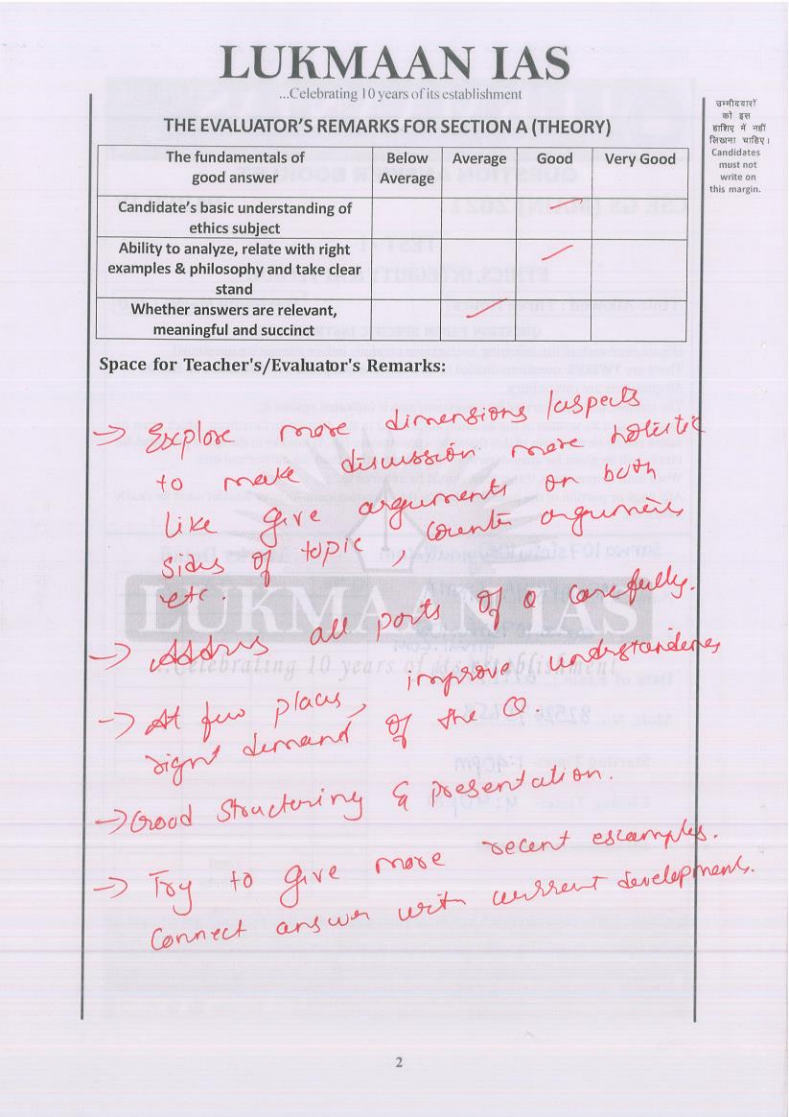 LUKMAAN IAS
...Celebrating 10 years of its establishment
उम्मीदवारों
को इस
हाशिए में नहीं
लिखना चाहिए।
Candidates
must not
write on
this margin.
THE EVALUATOR'S REMARKS FOR SECTION A (THEORY)
The fundamentals of
good answer
Below
Average
Average
Good
Very Good
Candidate's basic understanding of
ethics subject
Ability to analyze, relate with right
examples & philosophy and take clear
stand
Whether answers are relevant,
meaningful and succinct
Space for Teacher's/Evaluator's Remarks:
→ Explore more dimensions/aspects
to make discussion more holistic
like give arguments on both
sides of topic, counter arguments
etc.
LUKMAAN IAS
→ Address all parts of Q carefully.
...Celebrating 10 years of its establishment
→ At few places, improve understanding
right demand of the Q.
→ Good Structuring & presentation.
→ Try to give more recent examples.
Connect answer with current developments.
2